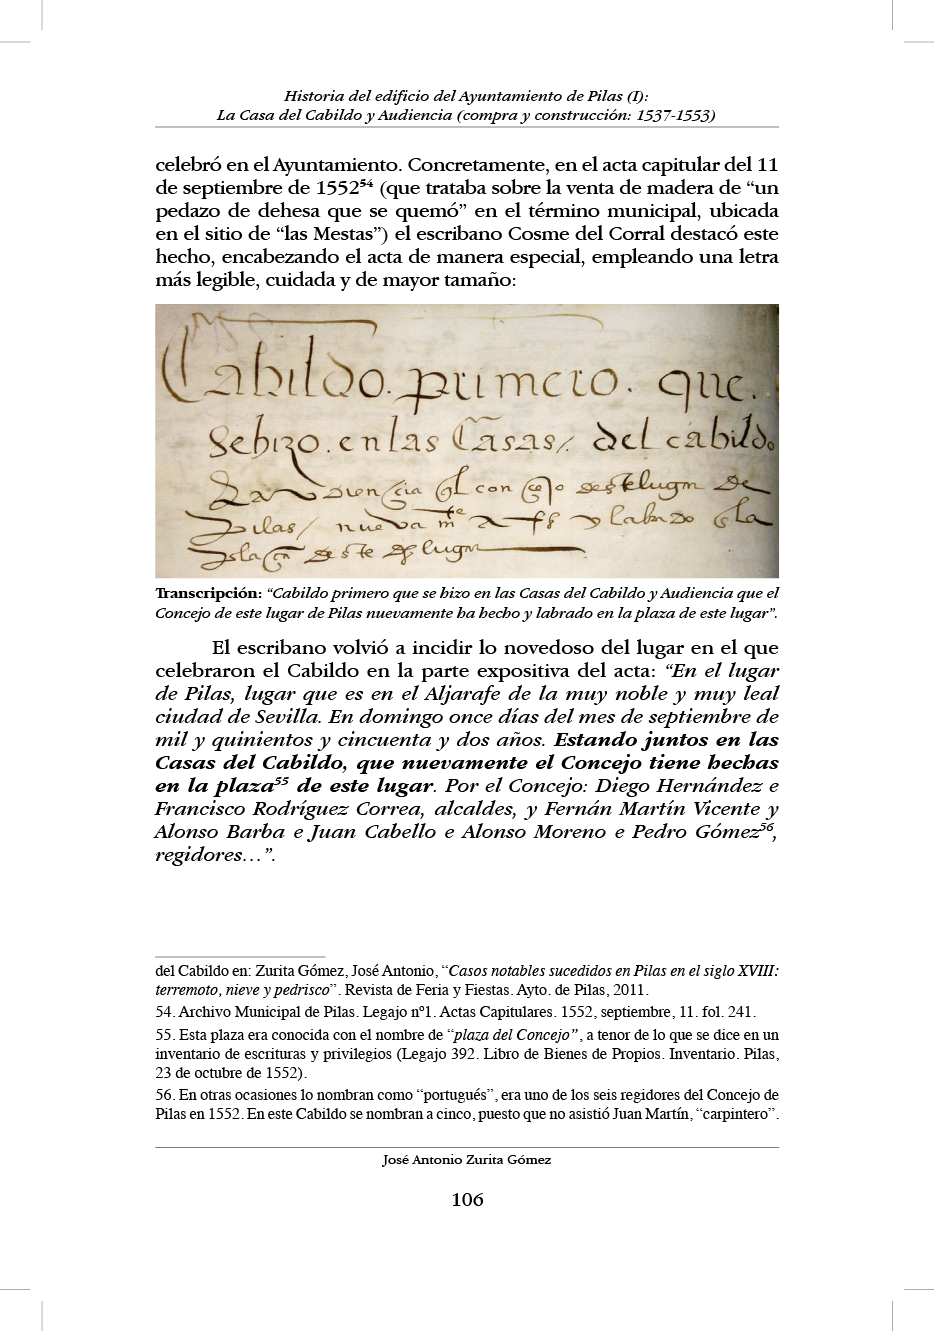 Historia del edificio del Ayuntamiento de Pilas (I):
La Casa del Cabildo y Audiencia (compra y construcción: 1537-1553)
celebró en el Ayuntamiento. Concretamente, en el acta capitular del 11
de septiembre de 1552⁵⁴ (que trataba sobre la venta de madera de “un
pedazo de dehesa que se quemó” en el término municipal, ubicada
en el sitio de “las Mestas”) el escribano Cosme del Corral destacó este
hecho, encabezando el acta de manera especial, empleando una letra
más legible, cuidada y de mayor tamaño:
Cabildo. primero. que.
se hizo. en las Casas/. del cabildo
Pilas/ nueva
Transcripción: “Cabildo primero que se hizo en las Casas del Cabildo y Audiencia que el
Concejo de este lugar de Pilas nuevamente ha hecho y labrado en la plaza de este lugar”.
El escribano volvió a incidir lo novedoso del lugar en el que
celebraron el Cabildo en la parte expositiva del acta: “En el lugar
de Pilas, lugar que es en el Aljarafe de la muy noble y muy leal
ciudad de Sevilla. En domingo once días del mes de septiembre de
mil y quinientos y cincuenta y dos años. Estando juntos en las
Casas del Cabildo, que nuevamente el Concejo tiene hechas
en la plaza⁵⁵ de este lugar. Por el Concejo: Diego Hernández e
Francisco Rodríguez Correa, alcaldes, y Fernán Martín Vicente y
Alonso Barba e Juan Cabello e Alonso Moreno e Pedro Gómez⁵⁶,
regidores…”.
del Cabildo en: Zurita Gómez, José Antonio, “Casos notables sucedidos en Pilas en el siglo XVIII:
terremoto, nieve y pedrisco”. Revista de Feria y Fiestas. Ayto. de Pilas, 2011.
54. Archivo Municipal de Pilas. Legajo nº1. Actas Capitulares. 1552, septiembre, 11. fol. 241.
55. Esta plaza era conocida con el nombre de “plaza del Concejo”, a tenor de lo que se dice en un
inventario de escrituras y privilegios (Legajo 392. Libro de Bienes de Propios. Inventario. Pilas,
23 de octubre de 1552).
56. En otras ocasiones lo nombran como “portugués”, era uno de los seis regidores del Concejo de
Pilas en 1552. En este Cabildo se nombran a cinco, puesto que no asistió Juan Martín, “carpintero”.
José Antonio Zurita Gómez
106